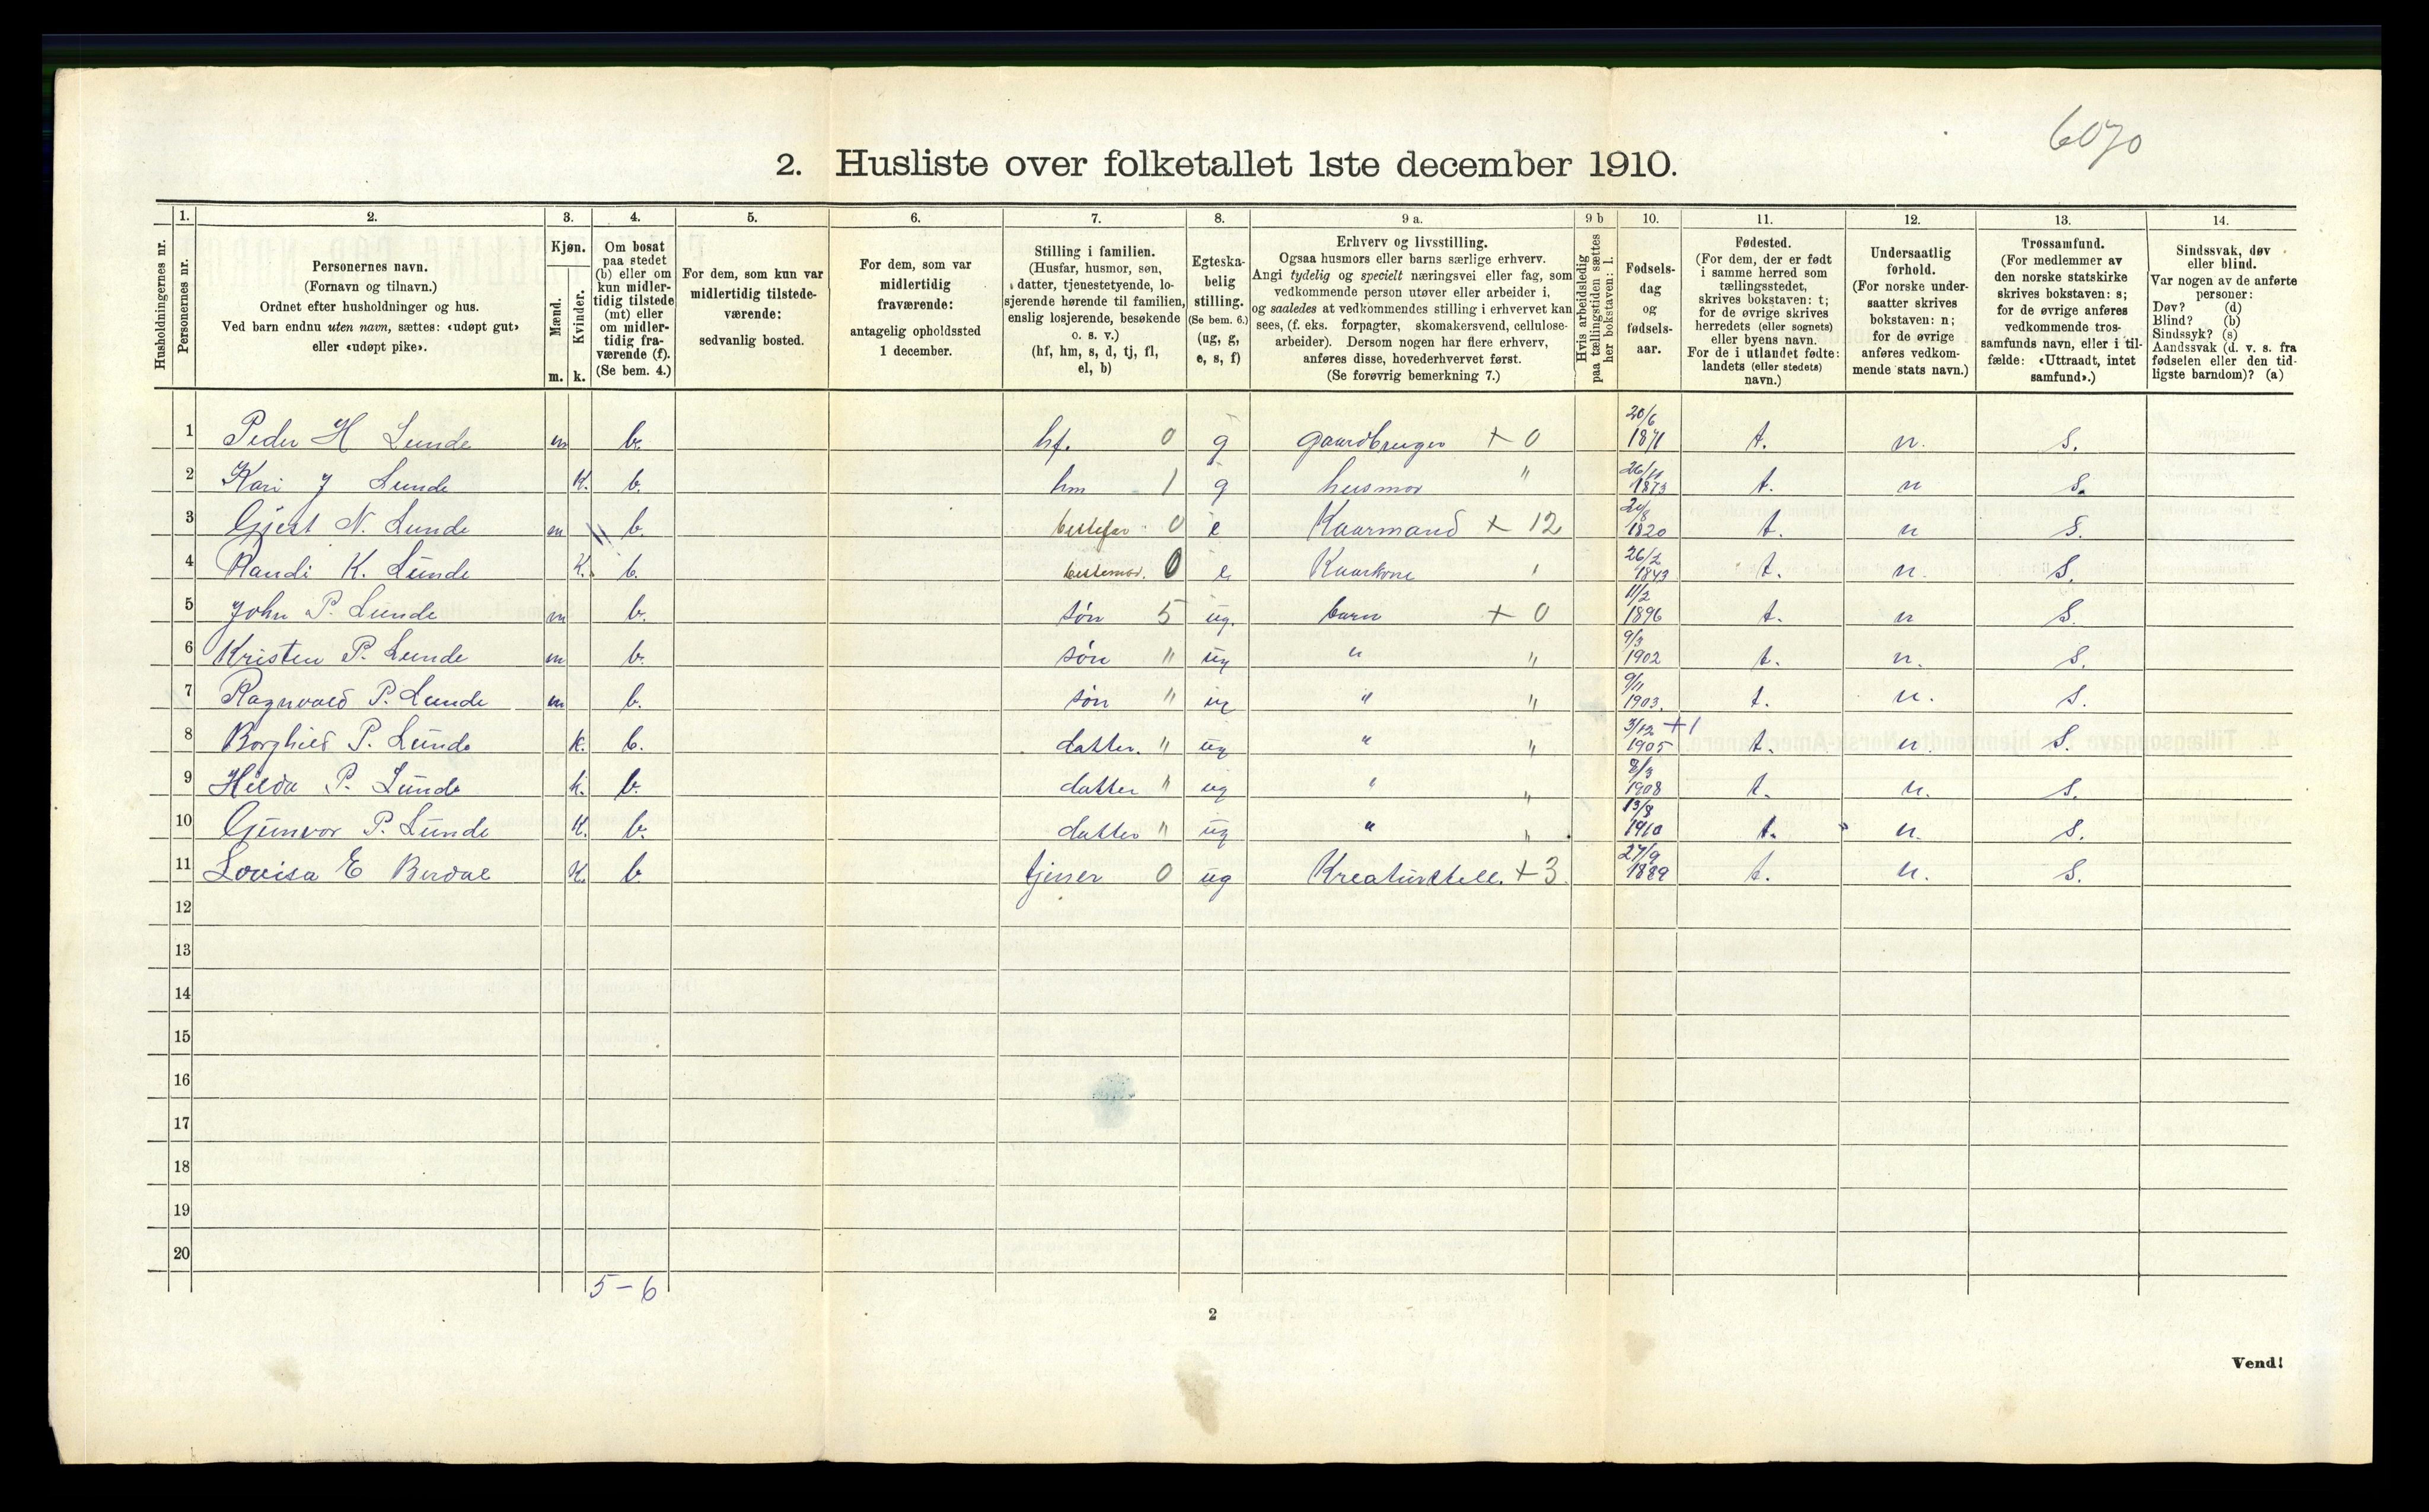 6070
2. Husliste over folketallet 1ste december 1910.
Husholdningernes nr.
1.
Personernes nr.
2.
Personernes navn.
(Fornavn og tilnavn.)
Ordnet efter husholdninger og hus.
Ved barn endnu uten navn, sættes: «udøpt gut»
eller «udøpt pike».
3.
Kjøn.
Mænd.
Kvinder.
m. k.
4.
Om bosat
paa stedet
(b) eller om
kun midler-
tidig tilstede
(mt) eller
om midler-
tidig fra-
værende (f).
(Se bem. 4.)
5.
For dem, som kun var
midlertidig tilstede-
værende:
sedvanlig bosted.
6.
For dem, som var
midlertidig
fraværende:
antagelig opholdssted
1 december.
7.
Stilling i familien.
(Husfar, husmor, søn,
datter, tjenestetyende, lo-
sjerende hørende til familien,
enslig losjerende, besøkende
o. s. v.)
(hf, hm, s, d, tj, fl,
el, b)
8.
Egteska-
belig
stilling.
(Se bem. 6.)
(ug, g,
e, s, f)
9 a.
Erhverv og livsstilling.
Ogsaa husmors eller barns særlige erhverv.
Angi tydelig og specielt næringsvei eller fag, som
vedkommende person utøver eller arbeider i,
og saaledes at vedkommendes stilling i erhvervet kan
sees, (f. eks. forpagter, skomakersvend, cellulose-
arbeider). Dersom nogen har flere erhverv,
anføres disse, hovederhvervet først.
(Se forøvrig bemerkning 7.)
9 b
Hvis arbeidsledig
paa tællingstiden sættes
her bokstaven: l.
10.
Fødsels-
dag
og
fødsels-
aar.
11.
Fødested.
(For dem, der er født
i samme herred som
tællingsstedet,
skrives bokstaven: t;
for de øvrige skrives
herredets (eller sognets)
eller byens navn.
For de i utlandet fødte:
landets (eller stedets)
navn.)
12.
Undersaatlig
forhold.
(For norske under-
saatter skrives
bokstaven: n;
for de øvrige
anføres vedkom-
mende stats navn.)
13.
Trossamfund.
(For medlemmer av
den norske statskirke
skrives bokstaven: s;
for de øvrige anføres
vedkommende tros-
samfunds navn, eller i til-
fælde: «Uttraadt, intet
samfund».)
14.
Sindssvak, døv
eller blind.
Var nogen av de anførte
personer:
Døv? (d)
Blind? (b)
Sindssyk? (s)
Aandssvak (d. v. s. fra
fødselen eller den tid-
ligste barndom)? (a)
1 Peder H Lunde m b. hf. 0 g gaardbruger + 0 20/6 1871 t. n. S.
2 Kari J Lunde K. b. hm 1 g husmor " 26/11 1873 t. n S.
3 Gjest N. Lunde m b. bestefar 0 e Kaarmand + 12 1820 t. n S.
4 Randi K. Lunde K. b. bestemor. 0 e Kaarkone " 26/2 1843 t. n. S.
5 John P. Lunde m b. søn 5 ug. barn + 0 11/2 1896 t. n S.
6 Kristen P. Lunde m b. søn " ug " " 9/3 1902 t. n. S.
7 Ragnvald P. Lunde m b. søn " ug " " 9/11 1903. t. n. S.
8 Borghild P. Lunde K. b. datter. " ug " " 3/12 +1 1905 t. n. S.
9 Hilda P. Lunde K. b. datter " ug " " 8/3 1908 t. n. S.
10 Gunvor P. Lunde K. b. datter " ug " " 13/8 1910 t. n. S.
11 Lovisa E Berdal K. b. tjener 0 ug Kreaturstell. + 3. 27/9 1889 t. n. S.
12
13
14
15
16
17
18
19
20
5 - 6
2
Vend!